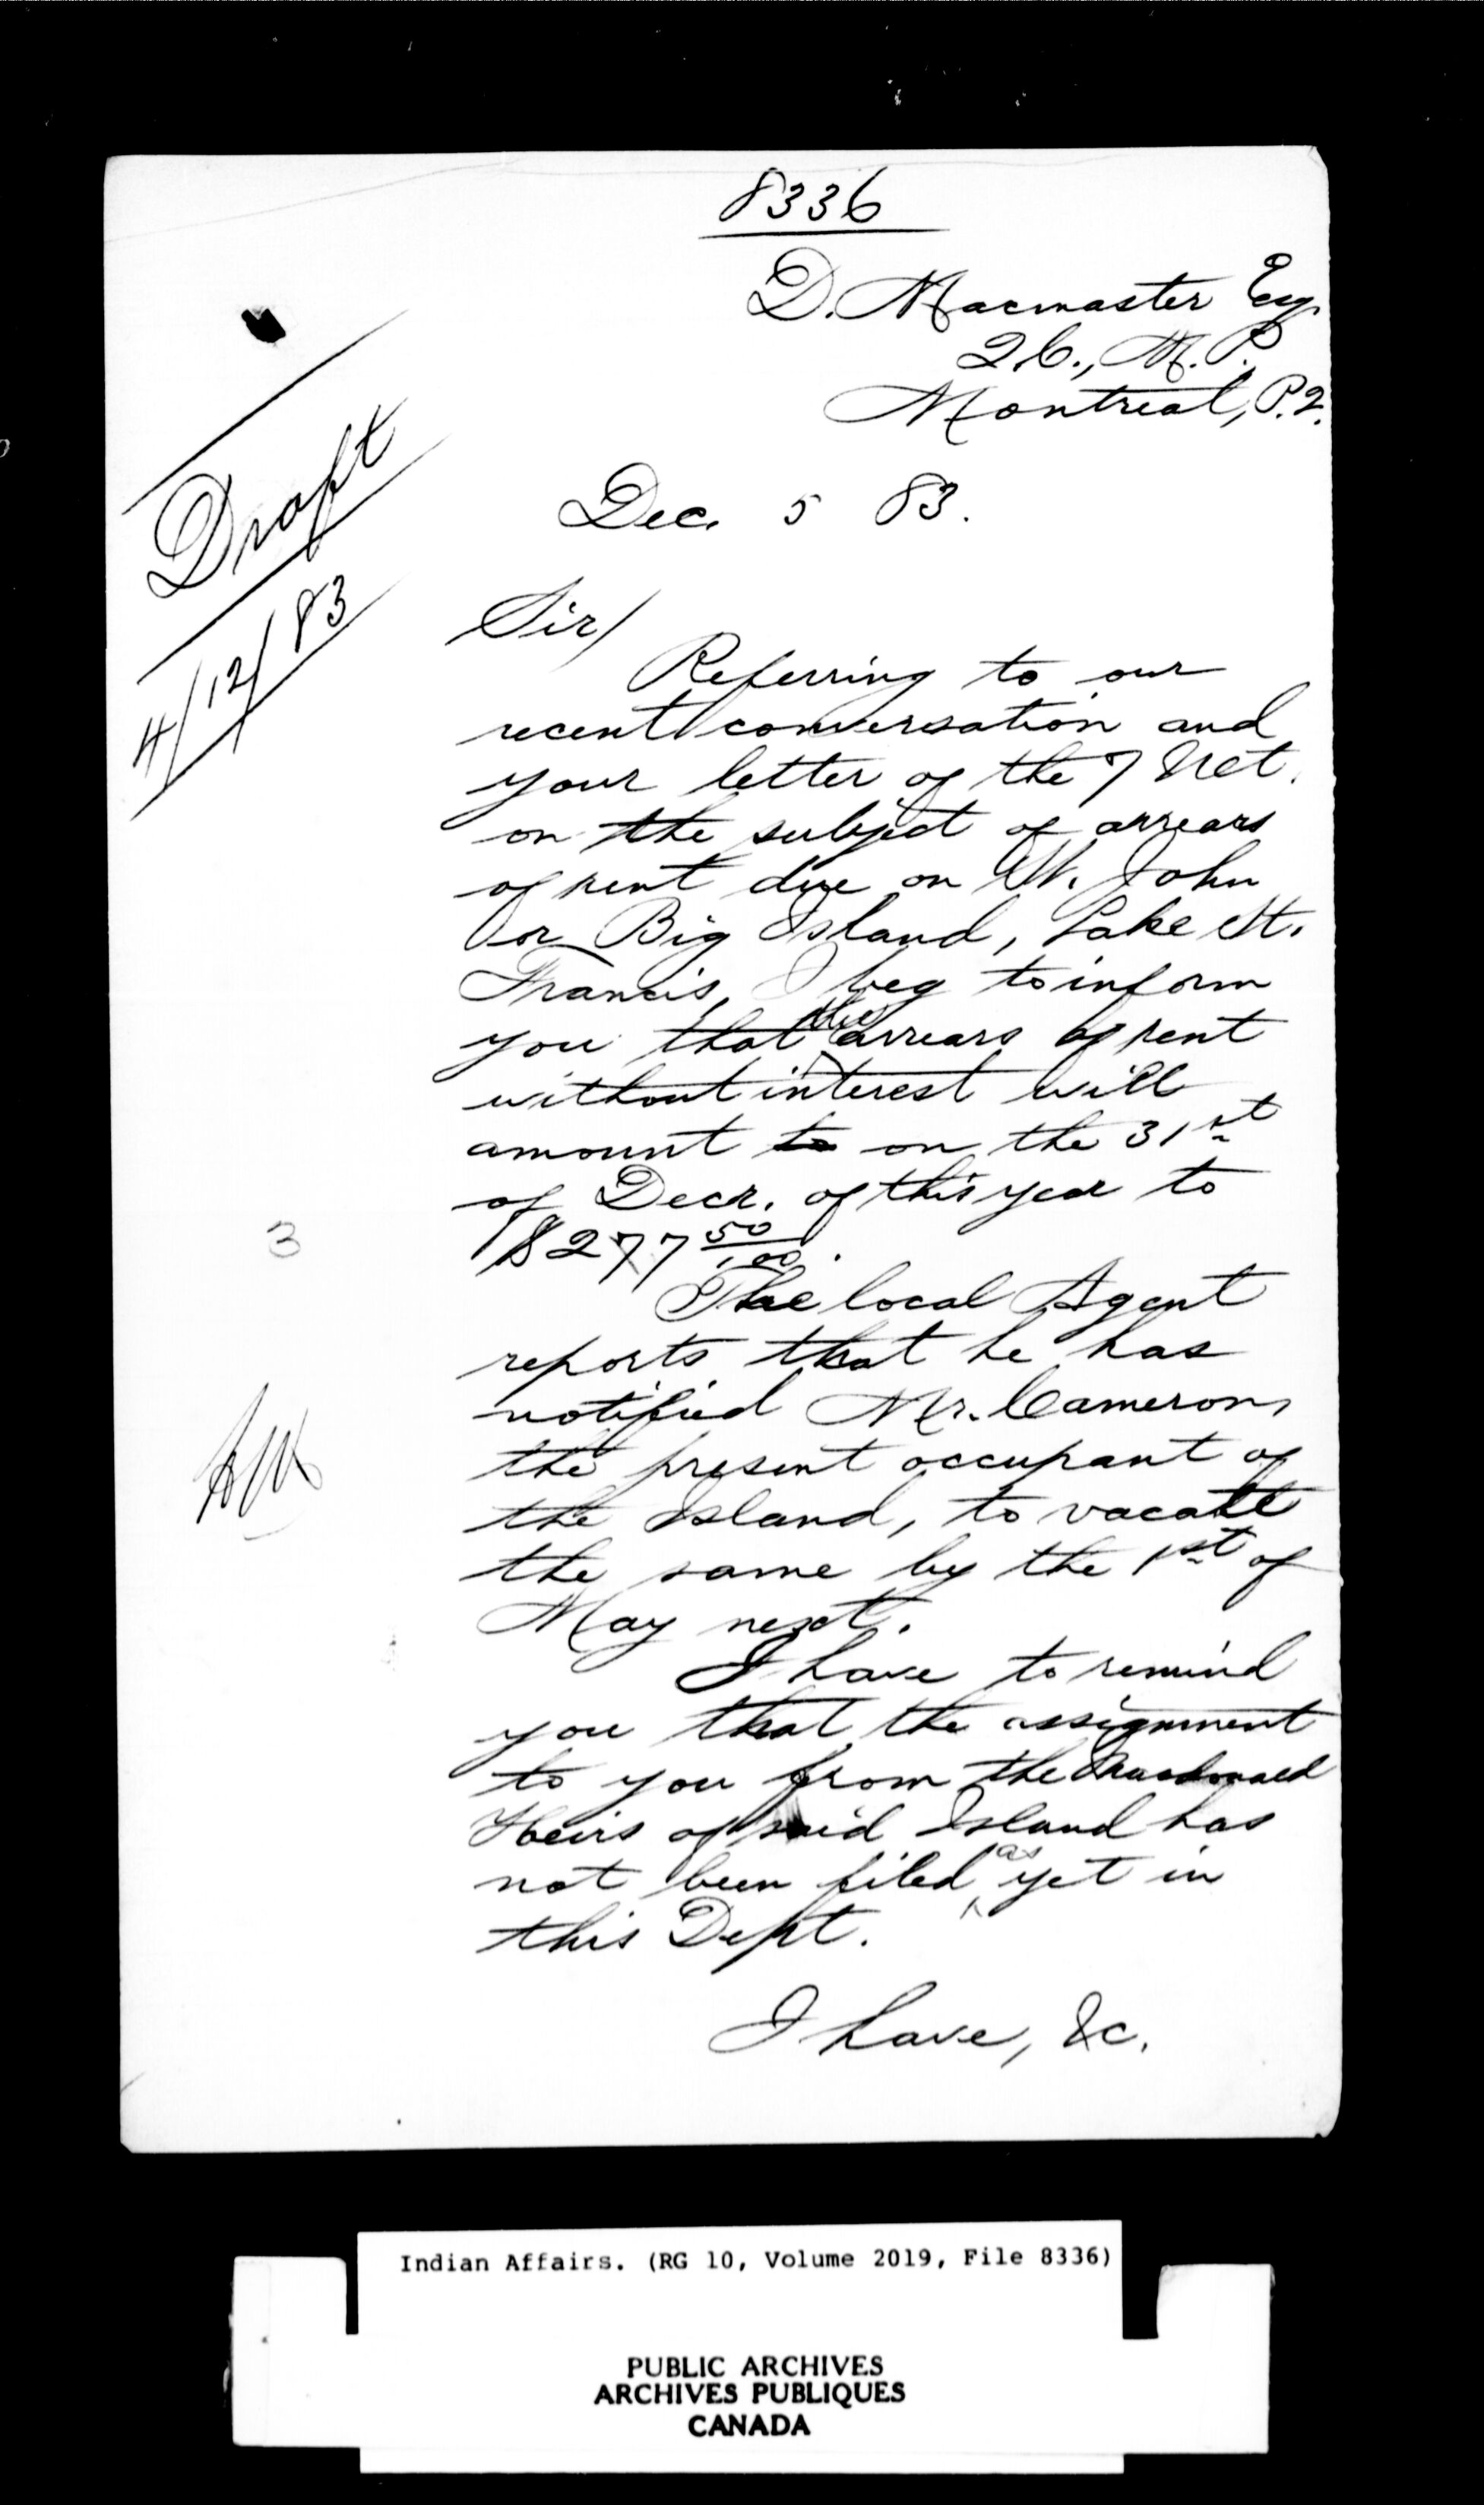 8336
D. Macmaster Esq
Q.C., M.P.
Montreal, P.Q.
Draft
4/12/83
Dec. 5 83.
Sir/
Referring to our
recent conversation and
your letter of the 7 Ult.
on the subject of arrears
of rent due on St. John
or Big Island, Lake St.
Francis, I beg to inform
you that the arrears of rent
without interest will
amount to on the 31st
of Decr. of this year to
$277 50/100.
The local Agent
reports that he has
notified Mr. Cameron,
the present occupant of
the Island, to vacate
the same by the 1st of
May next.
I have to remind
you that the assignment
to you from the Macdonald
Heirs of said Island has
not been filed as yet in
this Dept.
I have, &c.
3
Indian Affairs. (RG 10, Volume 2019, File 8336)
PUBLIC ARCHIVES
ARCHIVES PUBLIQUES
CANADA